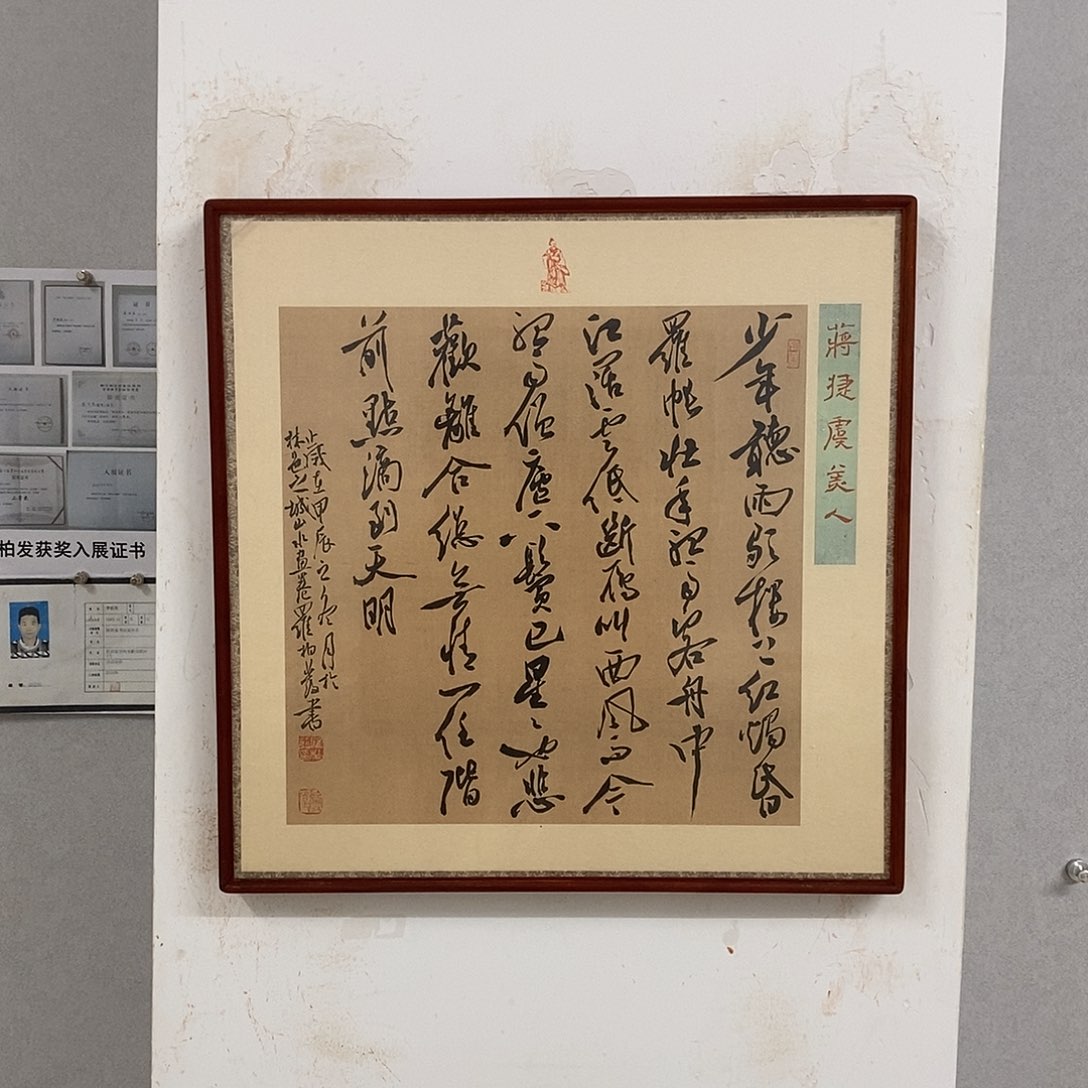 蔣捷虞美人
少年聽雨歌樓上紅燭昏
羅帳壯年聽雨客舟中
江闊云低斷雁叫西風而今
聽雨僧廬下鬢已星々也悲
歡離合總無情一任階
前點滴到天明
歲在甲辰之冬月於
林邑之城山水畫卷羅柏發書
柏发获奖入展证书